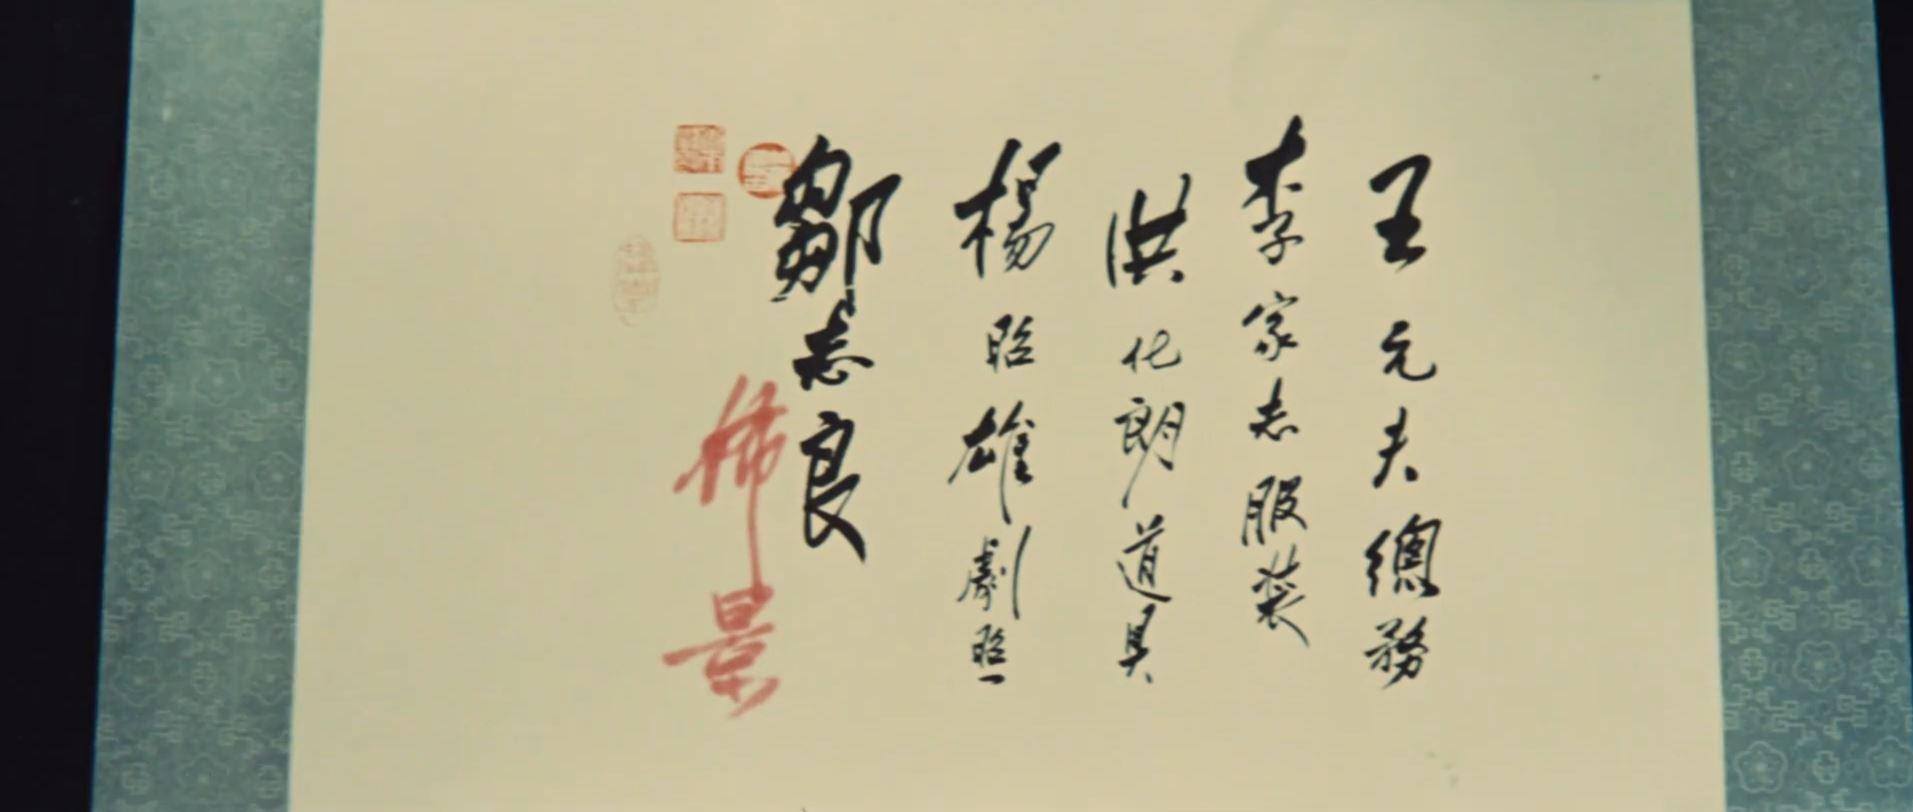 王元夫總務
李家志服裝
洪化朗道具
楊昭雄劇照
鄒志良
佈景